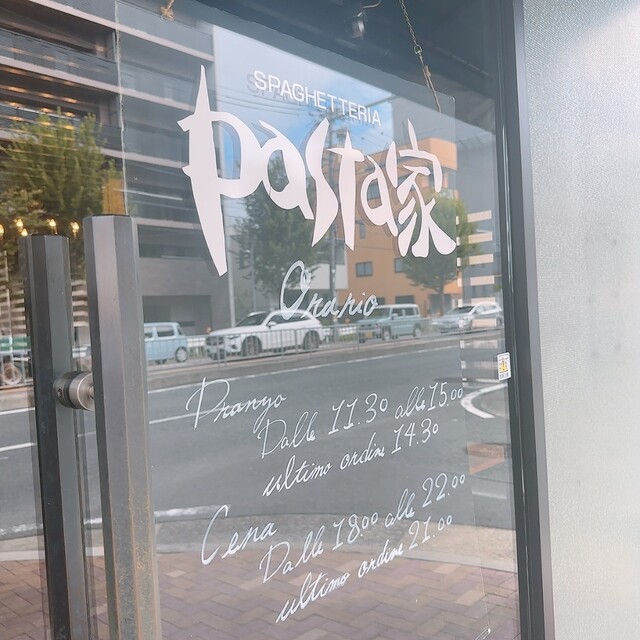 SPAGHETTERIA
Pasta家
Orario
Pranzo
Dalle 11.30 alle 15.00
ultimo ordine 14.30
Cena
Dalle 18.00 alle 22.00
ultimo ordine 21.00